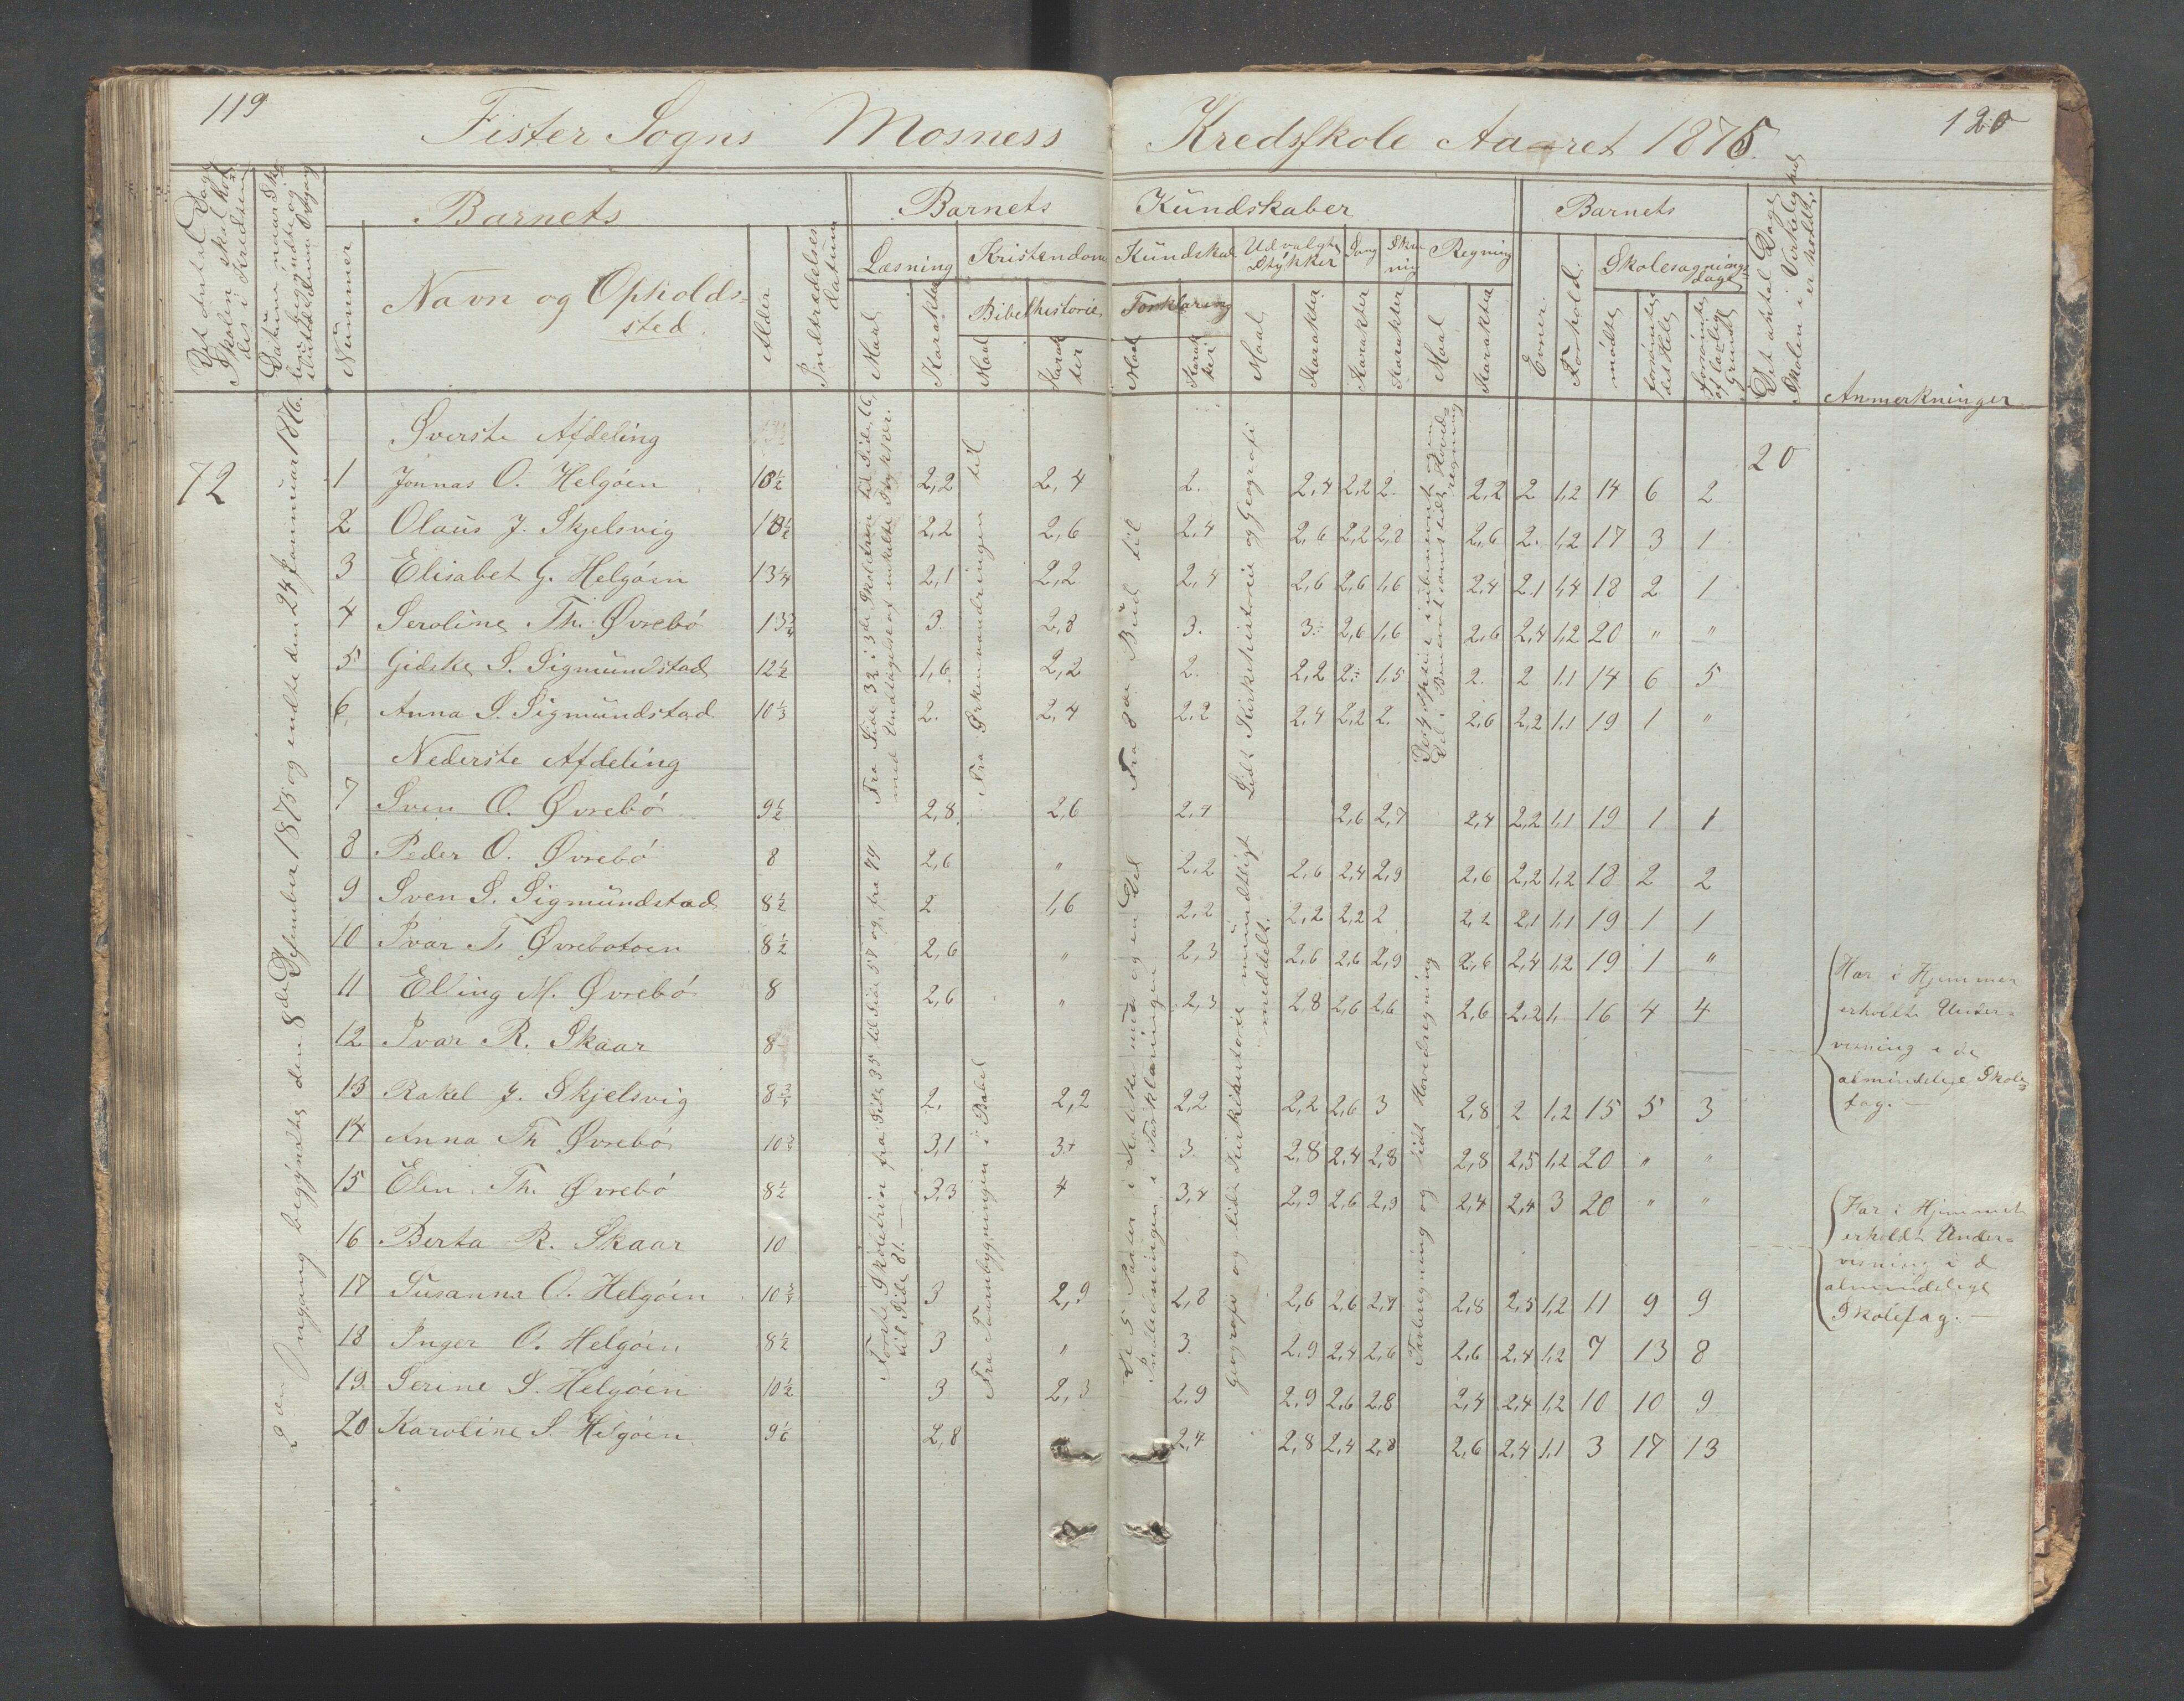 119
Fister Sogns Mosness Kredsskole Aaret 1875.
120
Det Antal Dage Skolen skal holdes i Kredsen
Nummer
Barnets
Navn og Opholds=
sted
Alder
Indtrædelses Datum
Barnets Kundskaber
Læsning
Maal
Karakter
Kristendoms Kundskab
Bibelhistorie
Maal
Karakter
Forklaring
Maal
Karakter
Udvalgte Stykker
Maal
Karakter
Sang
Karakter
Skrivning
Karakter
Regning
Maal
Karakter
Barnets
Evner
Forhold
Skolesøgnings
dage
mødte
forsømte det Hele
forsømte af lovlig Grund
Det Antal Dage Skolen i Virkelighed er holdt
Anmerkninger
72
2den Omgang begyndte den 8de Desember 1875 og endte den 24 Januuar 1876.
Øverste Afdeling
20
1 Jonnas O. Helgøen 10½ 2,2 2,4 2. 2,4 2,2 2. 2,2 2 1,2 14 6 2
2 Olaus J. Skjelsvig 10½ 2,2 2,6 2,4 2,6 2,2 2,2 2,6 2. 1,2 17 3 1
3 Elisabet G. Helgøen 13¼ 2,1 2,2 2,4 2,6 2,6 1,6 2,4 2,1 1,4 18 2 1
4 Seroline Th. Øvrebø 13¾ 3. 2,8 3. 3. 2,6 1,6 2,6 2,4 1,2 20 " "
5 Gidske S. Sigmundstad 12½ 1,6 2,2 2. 2,2 2. 1,5 2. 2 1,1 14 6 5
6 Anna S. Sigmundstad 10⅓ 2. 2,4 2,2 2,4 2,2 2. 2,6 2,2 1,1 19 1 "
Nederste Afdeling
7 Sven O. Øvrebø 9½ 2,8 2,6 2,4 2,6 2,7 2,4 2,2 1,1 19 1 1
8 Peder O. Øvrebø 8 2,6 " 2,2 2,6 2,4 2,9 2,6 2,2 1,2 18 2 2
9 Sven S. Sigmundstad 8½ 2 1,6 2,2 2,2 2,2 2 2,2 2,1 1,1 19 1 1
10 Ivar T. Øvrebotoen 8½ 2,6 " 2,3 2,6 2,6 2,9 2,6 2,4 1,2 19 1 "
11 Elling M. Øvrebø 8 2,6 " 2,3 2,8 2,6 2,6 2,6 2,2 1. 16 4 4
12 Ivar R. Skaar 8
Har i Hjemmet
erholdt Under=
visning i de
almindelige Skole=
fag. —
13 Rakel J. Skjelsvig 8¾ 2. 2,2 2,2 2,2 2,6 3 2,8 2 1,2 15 5 3
14 Anna Th Øvrebø 10¾ 3,1 3+ 3. 2,8 2,4 2,8 2,8 2,5 1,2 20 " "
15 Elen Th. Øvrebø 8½ 3,3 4 3,4 2,9 2,6 2,9 2,4 2,4 3 20 " "
16 Berta R. Skaar 10
Har i Hjemmet
erholdt Under=
visning i d
almindelige
Skolefag. —
17 Susanna O. Helgøen 10¾ 3 2,9 2,8 2,6 2,6 2,7 2,8 2,5 1,2 11 9 9
18 Inger O. Helgøen 8½ 3 " 3. 2,9 2,4 2,6 2,6 2,4 1,2 7 13 8
19. Serine S. Helgøen 10½ 3 2,3 2,9 2,9 2,6 2,8 2,4 2,4 1,2 10 10 9
20 Karoline S. Helgøen 9⅙ 2,8 2,4 2,8 2,4 2,8 2,6 2,4 1,1 3 17 13
Fra Side 32 i 3die Skoletrin til Side 66,
med Undtagelse af enkelte Stykker.
Fra Ørkenvandringen til
Fra 8de Bud til
Lidt Kirkehistorie og Geografi
Første Skoletrin fra Side 35 til Side 57 og fra 79
til Side 81. —
Fra Taarnbygningen i Babel
De 5 Parter i Katekismus og en Del
Indledningen i Forklaringen
Geografi og lidt Kirkehistorie mundtligt
meddelt.
Tavleregning og lidt Hovedregning